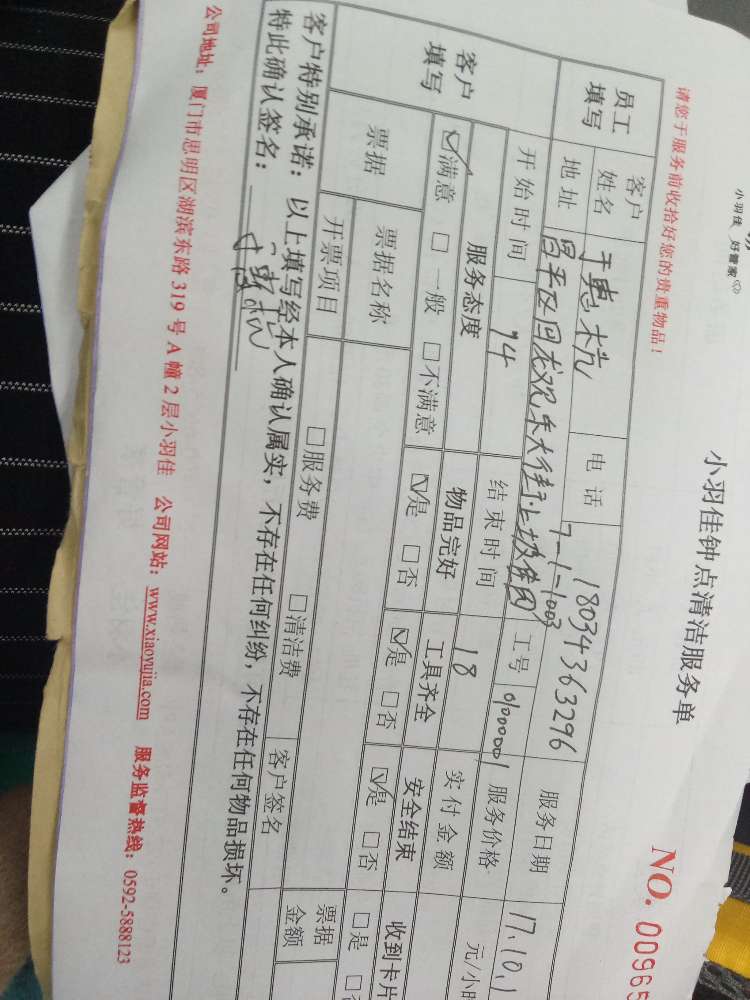 小羽佳 好管家
小羽佳钟点清洁服务单
NO. 00965
请您于服务前收拾好您的贵重物品！
员工填写 客户姓名 于惠杭 电话 18034363296 服务日期 17.10.1
地址 昌平区回龙观东大街 7-1-1003 工号 0100001 服务价格 元/小时
开始时间 14 结束时间 18 实付金额
客户填写 服务态度 物品完好 工具齐全 安全结束 收到卡片
☑满意 □一般 □不满意 ☑是 □否 ☑是 □否 ☑是 □否 □是 □否
票据 票据名称 票据金额
开票项目 □服务费 □清洁费 客户签名
客户特别承诺：以上填写经本人确认属实，不存在任何纠纷，不存在任何物品损坏。
特此确认签名：
公司地址：厦门市思明区湖滨东路 319 号 A 幢 2 层小羽佳 公司网站：www.xiaoyujia.com 服务监督热线：0592-5888123